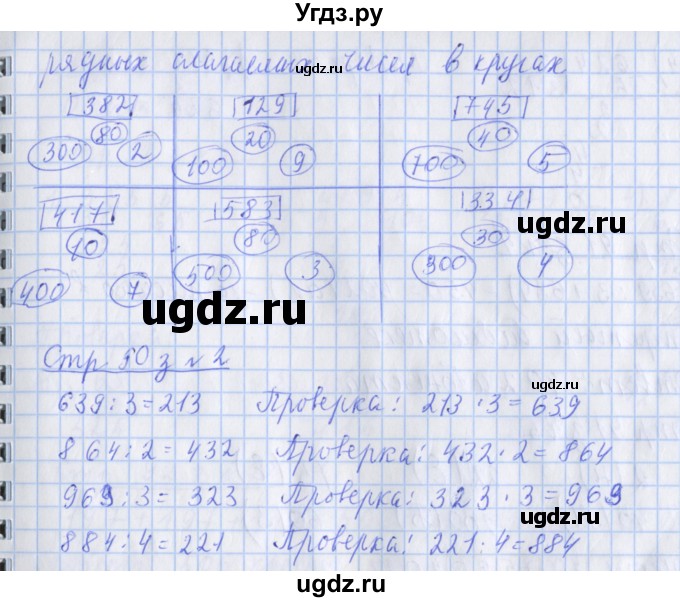 Угдз.ру
рядных слагаемых чисел в кругах
ugdz.ru
382 129 745
80 20 40
300 2 100 9 700 5
417 583 334
ugdz.ru
10 80 30
400 7 500 3 300 4
ugdz.ru
Стр 50 з № 2
ugdz.ru
639:3=213 Проверка: 213·3=639
864:2=432 Проверка: 432·2=864
969:3=323 Проверка: 323·3=969
ugdz.ru
884:4=221 Проверка: 221·4=884
ugdz.ru